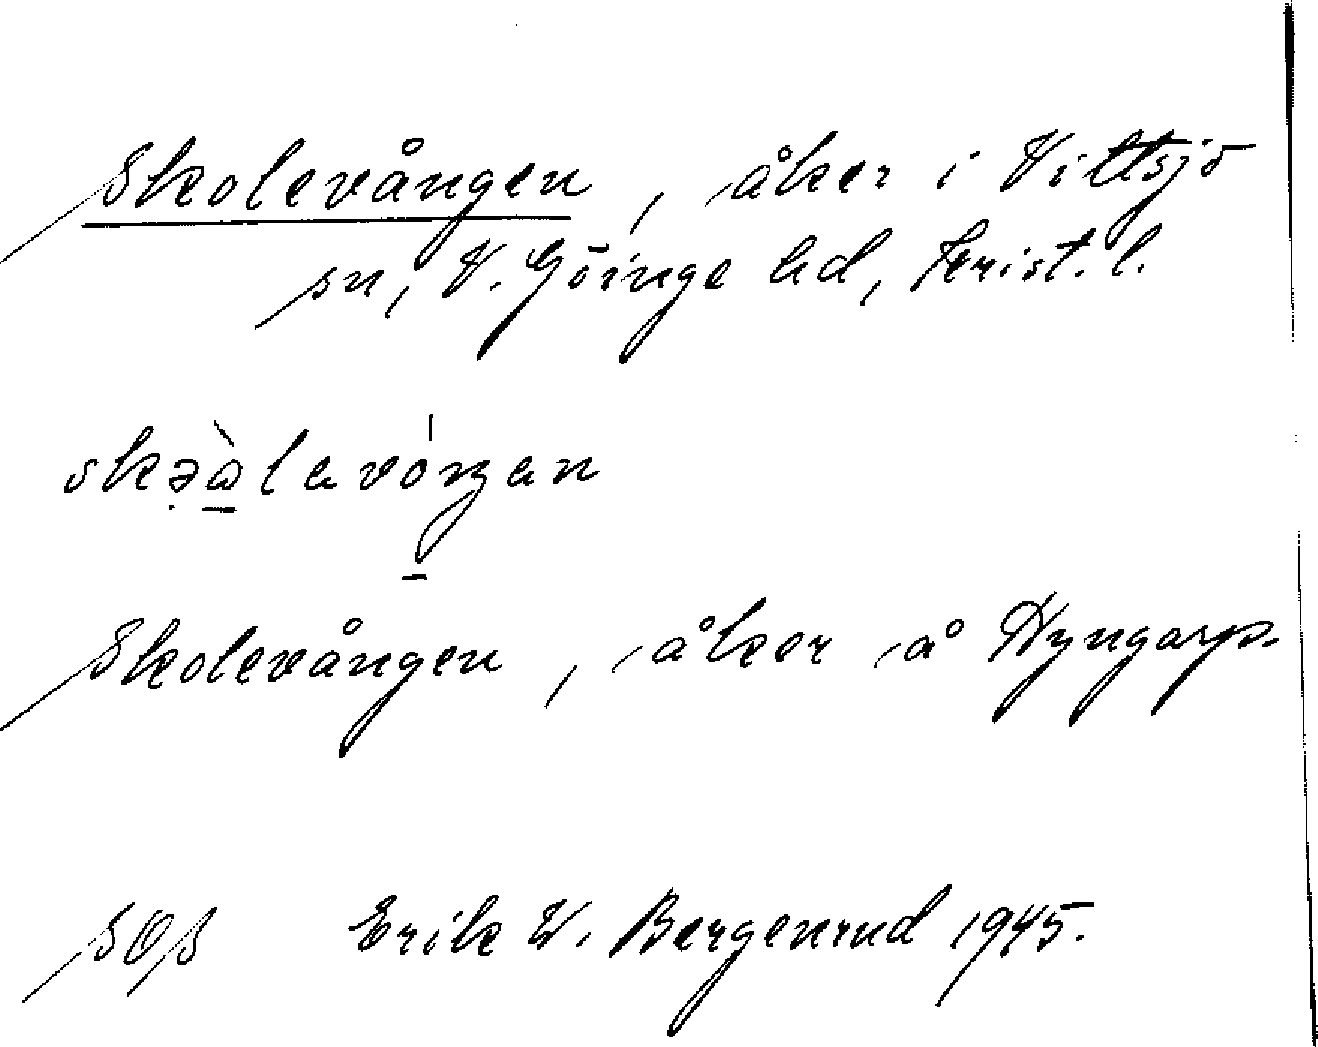 Skolevången, åker i Vittsjö
sn, V. Göinge hd, Krist. l.
Skolevången, åker å Hyngarp.
SOS Erik W. Bergenrud 1945.